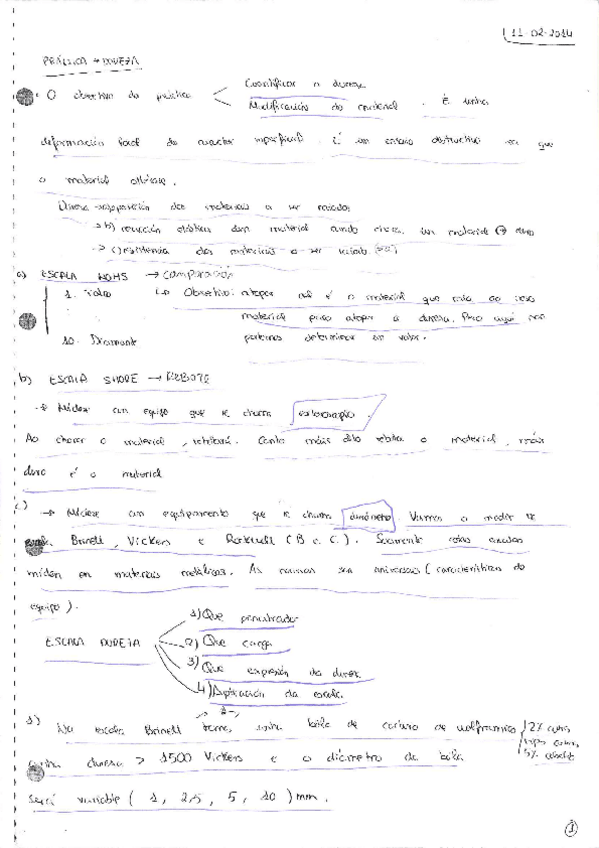 11-02-2014
PRÁCTICA → DUREZA
O obxectivo da práctica < Cuantificar a dureza
Modificación do material. É unha
deformación local de carácter superficial. É un ensaio destructivo xa que
o material
Dureza → oposición dos materiais a ser raiados
→ b) reacción elástica dun material cando choca. Un material duro
→ c) resistencia dos materiais a ser
a) ESCALA MOHS → Comparación
1. Talco → Obxectivo: atopar cal é o material que raia ao noso
material para atopar a dureza. Pero aquí non
10. Diamant podemos determinar un valor.
b) ESCALA SHORE → REBOTE
→ Mídese cun equipo que se chama escleroscopio.
Ao chocar o material, rebotará. Canto máis alto rebota o material, máis
duro é o material
c) → Mídese cun equipamento que se chama durómetro Vamos a medir
Brinell, Vickers e Rockwell (B e C). Solamente estas escalas
miden en materiais metálicos. As normas son universais (características do
equipo).
ESCALA DUREZA
1) Que penetrador
2) Que carga
3) Que expresión da dureza
4) Aplicación da escala.
1) Na escala Brinell temos unha bola de carburo de wolframio
cunha dureza > 1500 Vickers e o diámetro da bola
será variable (1, 2,5, 5, 10) mm.
1